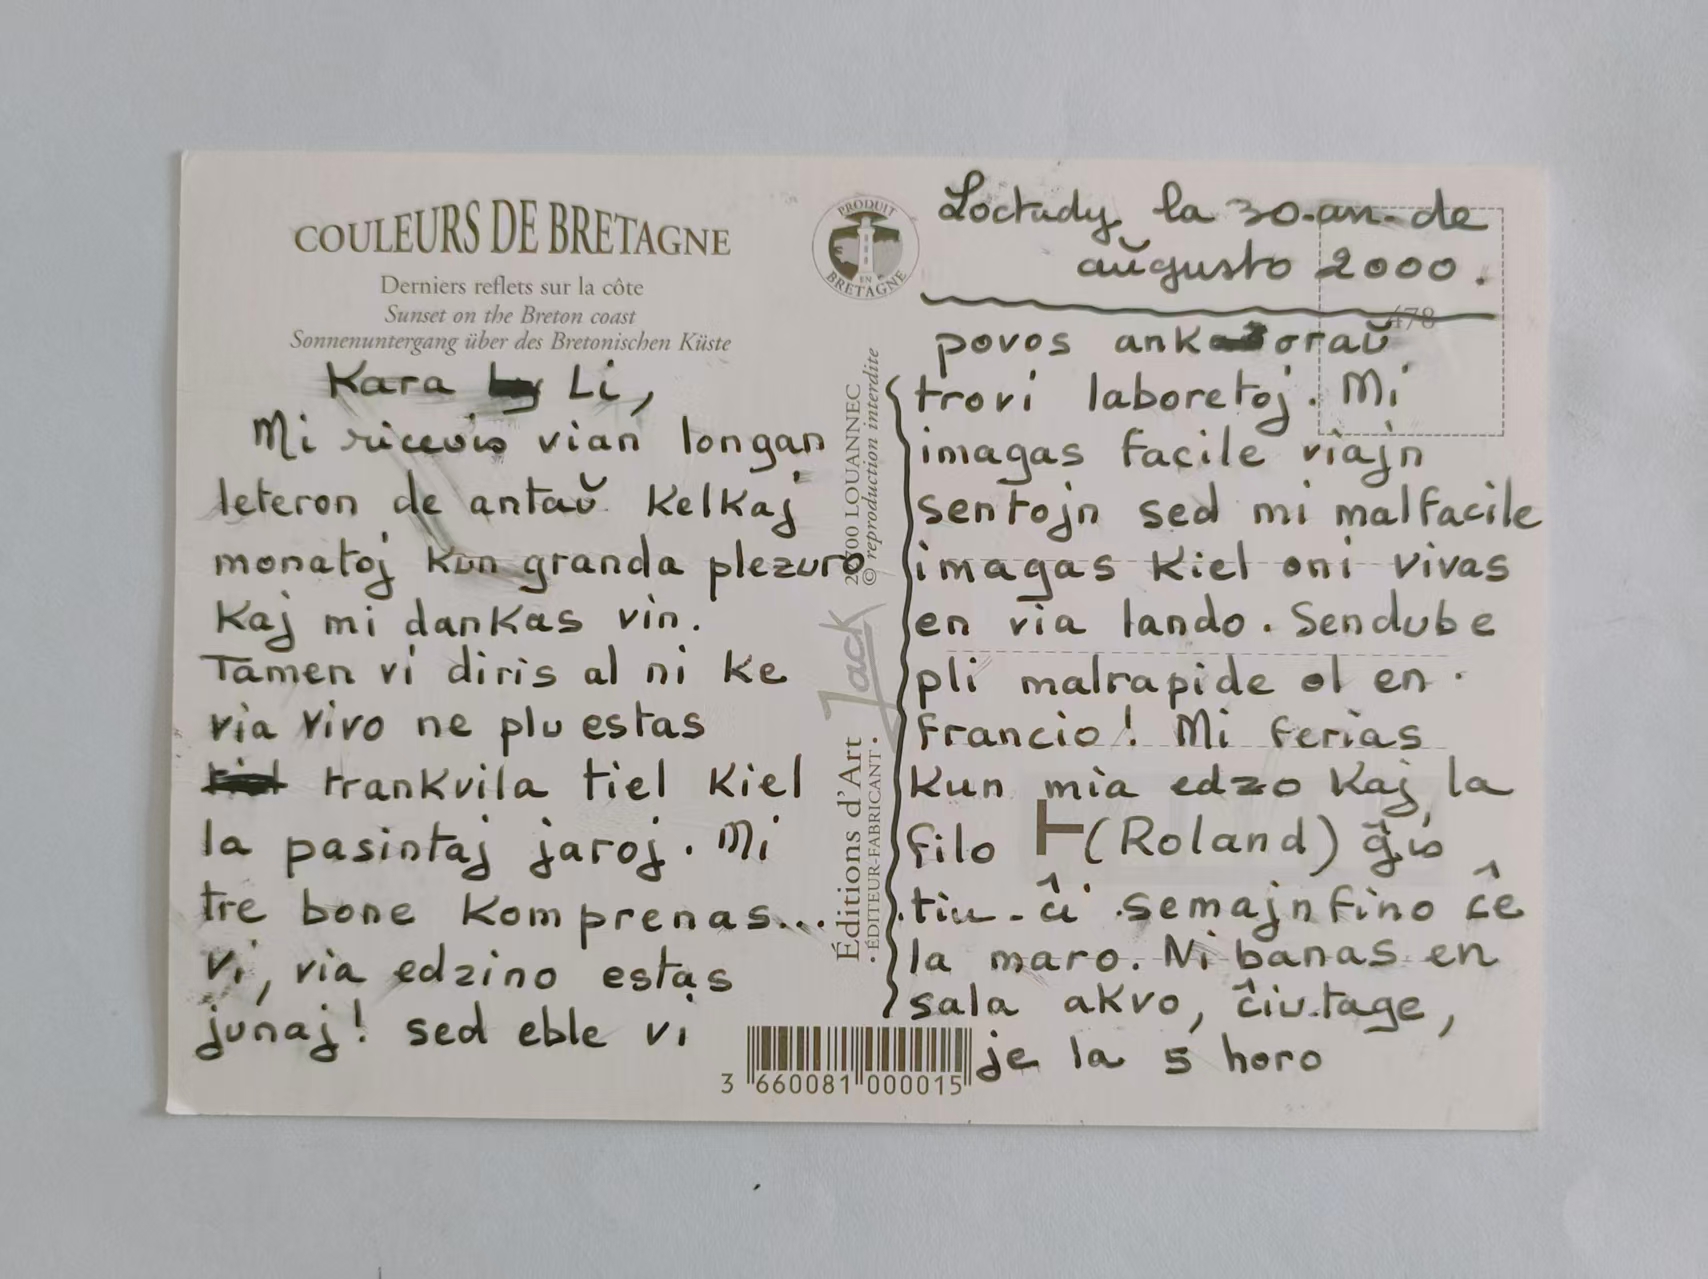 COULEURS DE BRETAGNE
Derniers reflets sur la côte
Sunset on the Breton coast
Sonnenuntergang über des Bretonischen Küste
Kara Li,
Mi ricevis vian longan
leteron de antaŭ kelkaj
monatoj kun granda plezuro
Kaj mi dankas vin.
Tamen vi diris al ni ke
via vivo ne plu estas
trankvila tiel kiel
la pasintaj jaroj. Mi
tre bone komprenas...
Vi, via edzino estas
junaj! sed eble vi
PRODUIT
EN
BRETAGNE
LOUANNEC
© reproduction interdite
Jack
Éditions d'Art
· ÉDITEUR-FABRICANT ·
3 660081 000015
Loctudy, la 30-an de
aŭgusto 2000.
478
povos ankoraŭ
trovi laboretoj. Mi
imagas facile viajn
sentojn sed mi malfacile
imagas kiel oni vivas
en via lando. Sendube
pli malrapide ol en
Francio! Mi ferias
kun mia edzo kaj la
filo (Roland) ĝis
tiu-ĉi semajnfino ĉe
la maro. Ni banas en
sala akvo, ĉiutage,
je la 5 horo